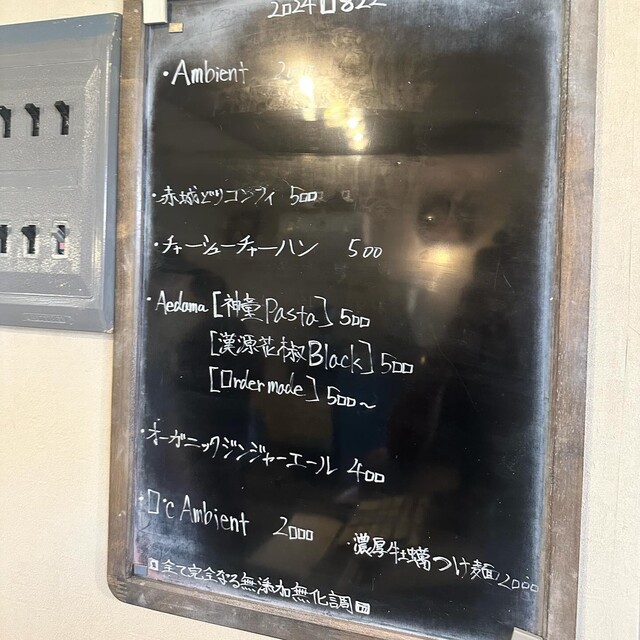 2024 0822
・Ambient
・赤城どりコンフィ 500
・チャーシューチャーハン 500
・Aedama [神童Pasta] 500
[漢源花椒Black] 500
[Order made] 500〜
・オーガニックジンジャーエール 400
・0℃ Ambient 2000
・濃厚牡蠣つけ麺 2000
全て完全なる無添加無化調